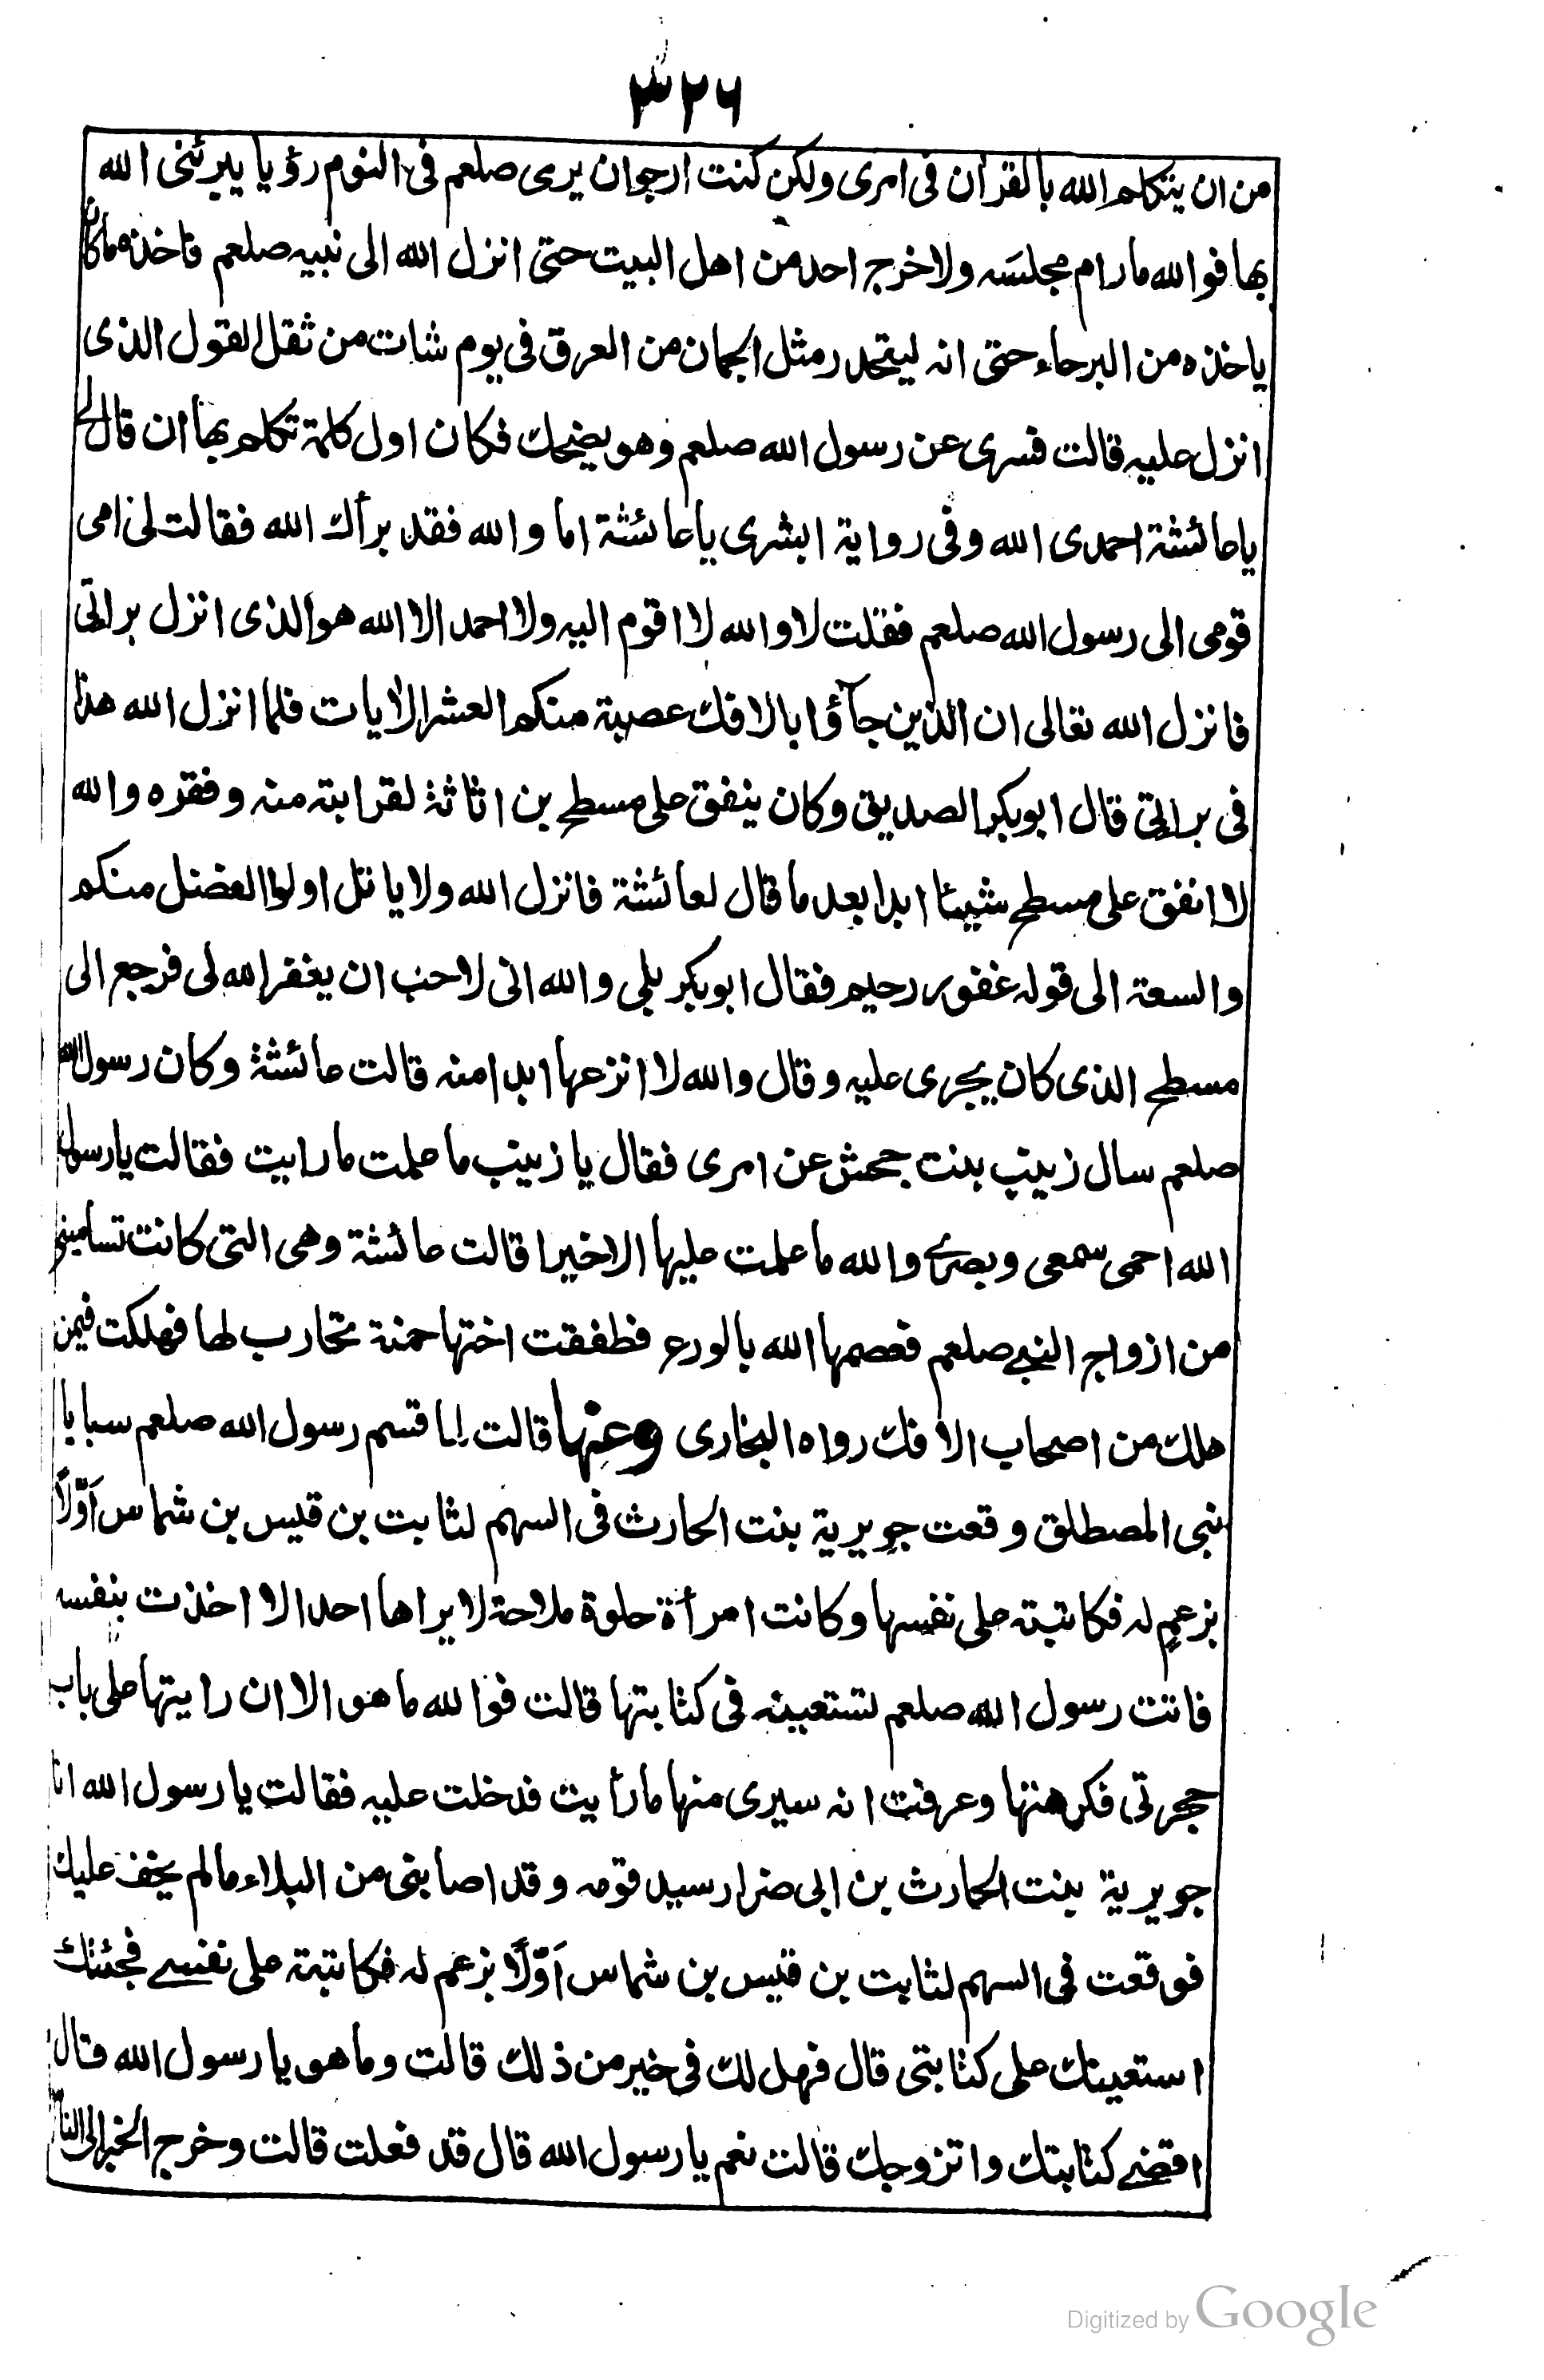 ٣٢٦
من ان يتكلم الله بالقرآن فى امرى ولكن كنت ارجوان يرى صلعم فى النوم رؤيا يبرئنى الله
بها فوالله مارام مجلسَه ولا خرج احد من اهل البيت حتى انزل الله الى نبيه صلعم فاخذه ماكان
ياخذه من البرحاء حتى انه ليتحدر مثل الجمان من العرق فى يوم شات من ثقل القول الذى
انزل عليه قالت فسرى عن رسول الله صلعم وهو يضحك فكان اول كلمة تكلم بها ان قال لى
ياعائشة احمدى الله وفى رواية ابشرى ياعائشة اما والله فقد برأك الله فقالت لى امى
قومى الى رسول الله صلعم فقلت لا والله لا اقوم اليه ولا احمد الا الله هو الذى انزل براتى
فانزل الله تعالى ان الذين جآؤا بالافك عصبة منكم العشر الايات فلما انزل الله هذا
فى براتى قال ابوبكر الصديق وكان ينفق على مسطح بن اثاثة لقرابته منه وفقره والله
لا انفق على مسطح شيئا ابدا بعد ما قال لعائشة فانزل الله ولا ياتل اولوا الفضل منكم
والسعة الى قوله غفور رحيم فقال ابوبكر بلى والله انى لاحب ان يغفر الله لى فرجع الى
مسطح الذى كان يجرى عليه وقال والله لا انزعها ابدا منه قالت عائشة وكان رسول الله
صلعم سال زينب بنت جحش عن امرى فقال يا زينب ما علمت ما رايت فقالت يا رسول
الله احمى سمعى وبصرى والله ما علمت عليها الا خيرا قالت عائشة وهى التى كانت تسامينى
من ازواج النبى صلعم فعصمها الله بالورع فطفقت اختها حمنة تحارب لها فهلكت فيمن
هلك من اصحاب الافك رواه البخارى وعنها قالت لما قسم رسول الله صلعم سبايا
بنى المصطلق وقعت جويرية بنت الحارث فى السهم لثابت بن قيس بن شماس اَوّلاً
بزعمٍ له فكاتبته على نفسها وكانت امرأة حلوة ملاحة لا يراها احد الا اخذت بنفسه
فاتت رسول الله صلعم لتستعينه فى كتابتها قالت فوالله ما هو الا ان رايتها على باب
حجرتى فكرهتها وعرفت انه سيرى منها ما رأيت فدخلت عليه فقالت يا رسول الله انا
جويرية بنت الحارث بن ابى ضرار سيد قومه وقد اصابنى من البلاء مالم يخف عليك
فوقعت فى السهم لثابت بن قيس بن شماس اَوّلاً بزعم له فكاتبته على نفسى فجئتك
استعينك على كتابتى قال فهل لك فى خير من ذلك قالت وما هو يا رسول الله قال
اقضى كتابتك واتزوجك قالت نعم يا رسول الله قال قد فعلت قالت وخرج الخبر الى الناس
Digitized by Google